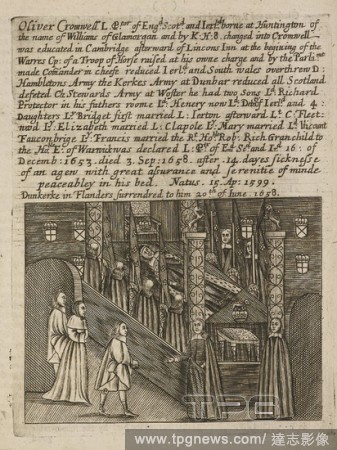 Oliver Cromwell L. Pror. of Engd. Scotd. and Ierld. borne at Huntington of
the name of Williams of Glamorgan. and by K: H: 8. changed into Cromwell
was educated in Cambridge afterward of Lincons Inn at the begining of the
Warres Cp: of a Troop of Horse raised at his owne charge and by the Parlimt.
made Comander in cheefe reduced Ierld. and South wales overthrew D:
Hambletons Army the Kerkes Army at Dunbar reduced all Scotland
defeted Ch: Stewards Army at Wostor he had two Sons Ld. Richard
Protector in his futhers roome Ld. Henery now Ld. of Ierld. and 4:
Daughters Ly. Bridget fiist married L: Ierton afterward Ld. C: Fleet:
Elizabeth married L: Claipole Ly. Mary married Ld. Vicount
Fauconbrige Ly. Francis married the Rt. Hoble. Rob: Rich Granchild to
the E: of Warwick was declared L: of and 16: of
Decemb: 1653. died 3. Sep: 1658. after. 14. dayes sicknesse
of an agew with great assurance and serenitie of minde
peaceabley in his bed. Natus. 15. Ap: 1599.
Dunkerke in Flanders surrendred to him 20th. of Iune. 1658.
TPG
www.tpgnews.com/ 達志影像